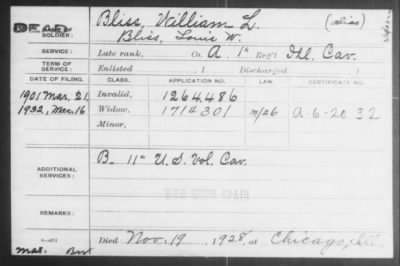 Bliss, William L. (alias)
DEAD
NAME OF SOLDIER:
Bliss, Louis W.
SERVICE:
Late rank, Co. A, 1" Reg't Ill. Cav.
TERM OF SERVICE:
Enlisted , 1 Discharged , 1
DATE OF FILING. CLASS. APPLICATION NO. LAW. CERTIFICATE NO.
1901 Mar. 21, Invalid, 1264,486
1932, Mar. 16 Widow, 1714301 m/26 A 6-20 32
Minor,
ADDITIONAL SERVICES:
B. 11" U.S. Vol. Cav.
WAR WITH SPAIN
REMARKS:
Died Nov. 19, 1928, at Chicago, Ill.